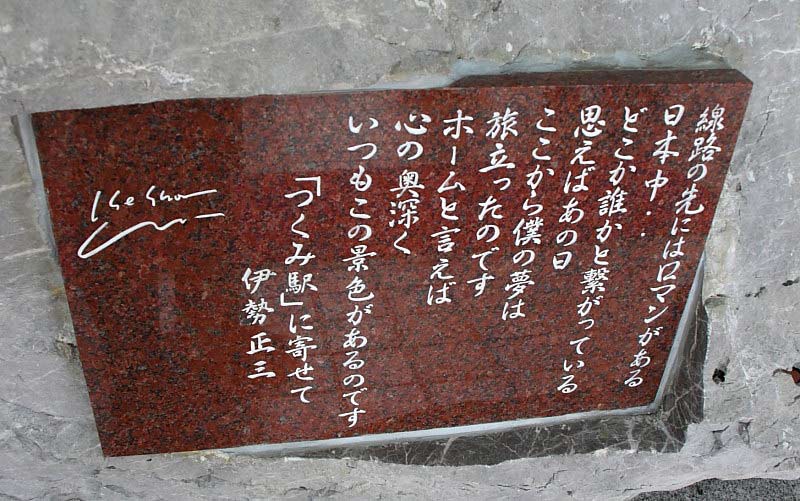 線路の先にはロマンがある
日本中・・
どこか誰かと繋がっている
思えばあの日
ここから僕の夢は
旅立ったのです
ホームと言えば
心の奥深く
いつもこの景色があるのです
「つくみ駅」に寄せて
伊勢正三